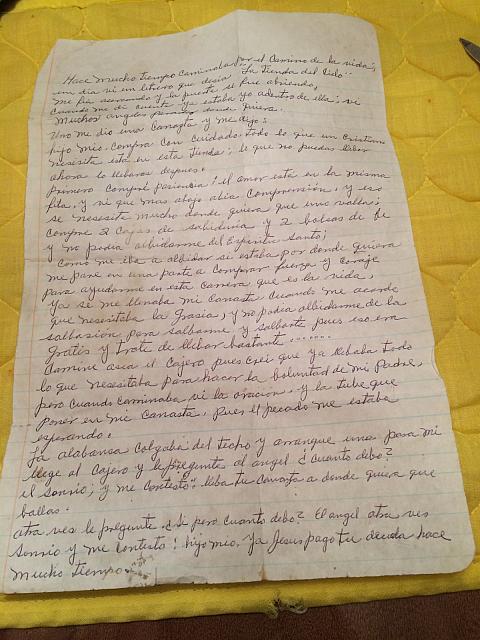 Hace mucho tiempo caminaba por el camino de la vida;
un dia vi un letrero que desia "La Tienda del Cielo"
me fui asercando y la puerta se fue abriendo,
cuando me di cuenta ya estaba yo adentro de ella; vi
muchos angeles parados donde quiera.
Uno me dio una canasta y me dijo:
hijo mio, compra con cuidado, todo lo que un cristiano
necesita esta en esta tienda; lo que no puedas llebar
ahora lo llebaras despues.
primero compré pasiencia; el amor esta en la misma
fila, y vi que mas abajo abia comprensión, y eso
se nesesita mucho donde quiera que uno valla;
compre 2 cajas de sabiduria y 2 bolsas de fe
y no podia albidarme del Espiritu Santo;
como me iba a albidar si estaba por donde quiera
me pare en una parte a comprar fuerza y coraje
para ayudarme en esta carrera que es la vida,
ya se me llenaba mi canasta cuando me acorde
que nesesitaba la Grasia, y no podia albidarme de la
salbasión para salbarme y salbarte pues eso era
gratis y trate de llebar bastante......
Camine asia el cajero pues crei que ya llebaba todo
lo que nesesitaba para hacer la boluntad de mi Padre,
pero cuando caminaba vi la oracion, y la tube que
poner en mi canasta, pues el pecado me estaba
esperando.
La alabansa colgaba del techo y arranque una para mi
llege al cajero y le pregunte al angel ¿cuanto debo?
el sonrio; y me contestó: lleba tu canasta a donde quiera que
ballas.
atra ves le pregunte ¿Si pero cuanto debo? El angel atra ves
sonrio y me contesto: hijo mio, ya Jesus pago tu deuda hace
mucho tiempo.